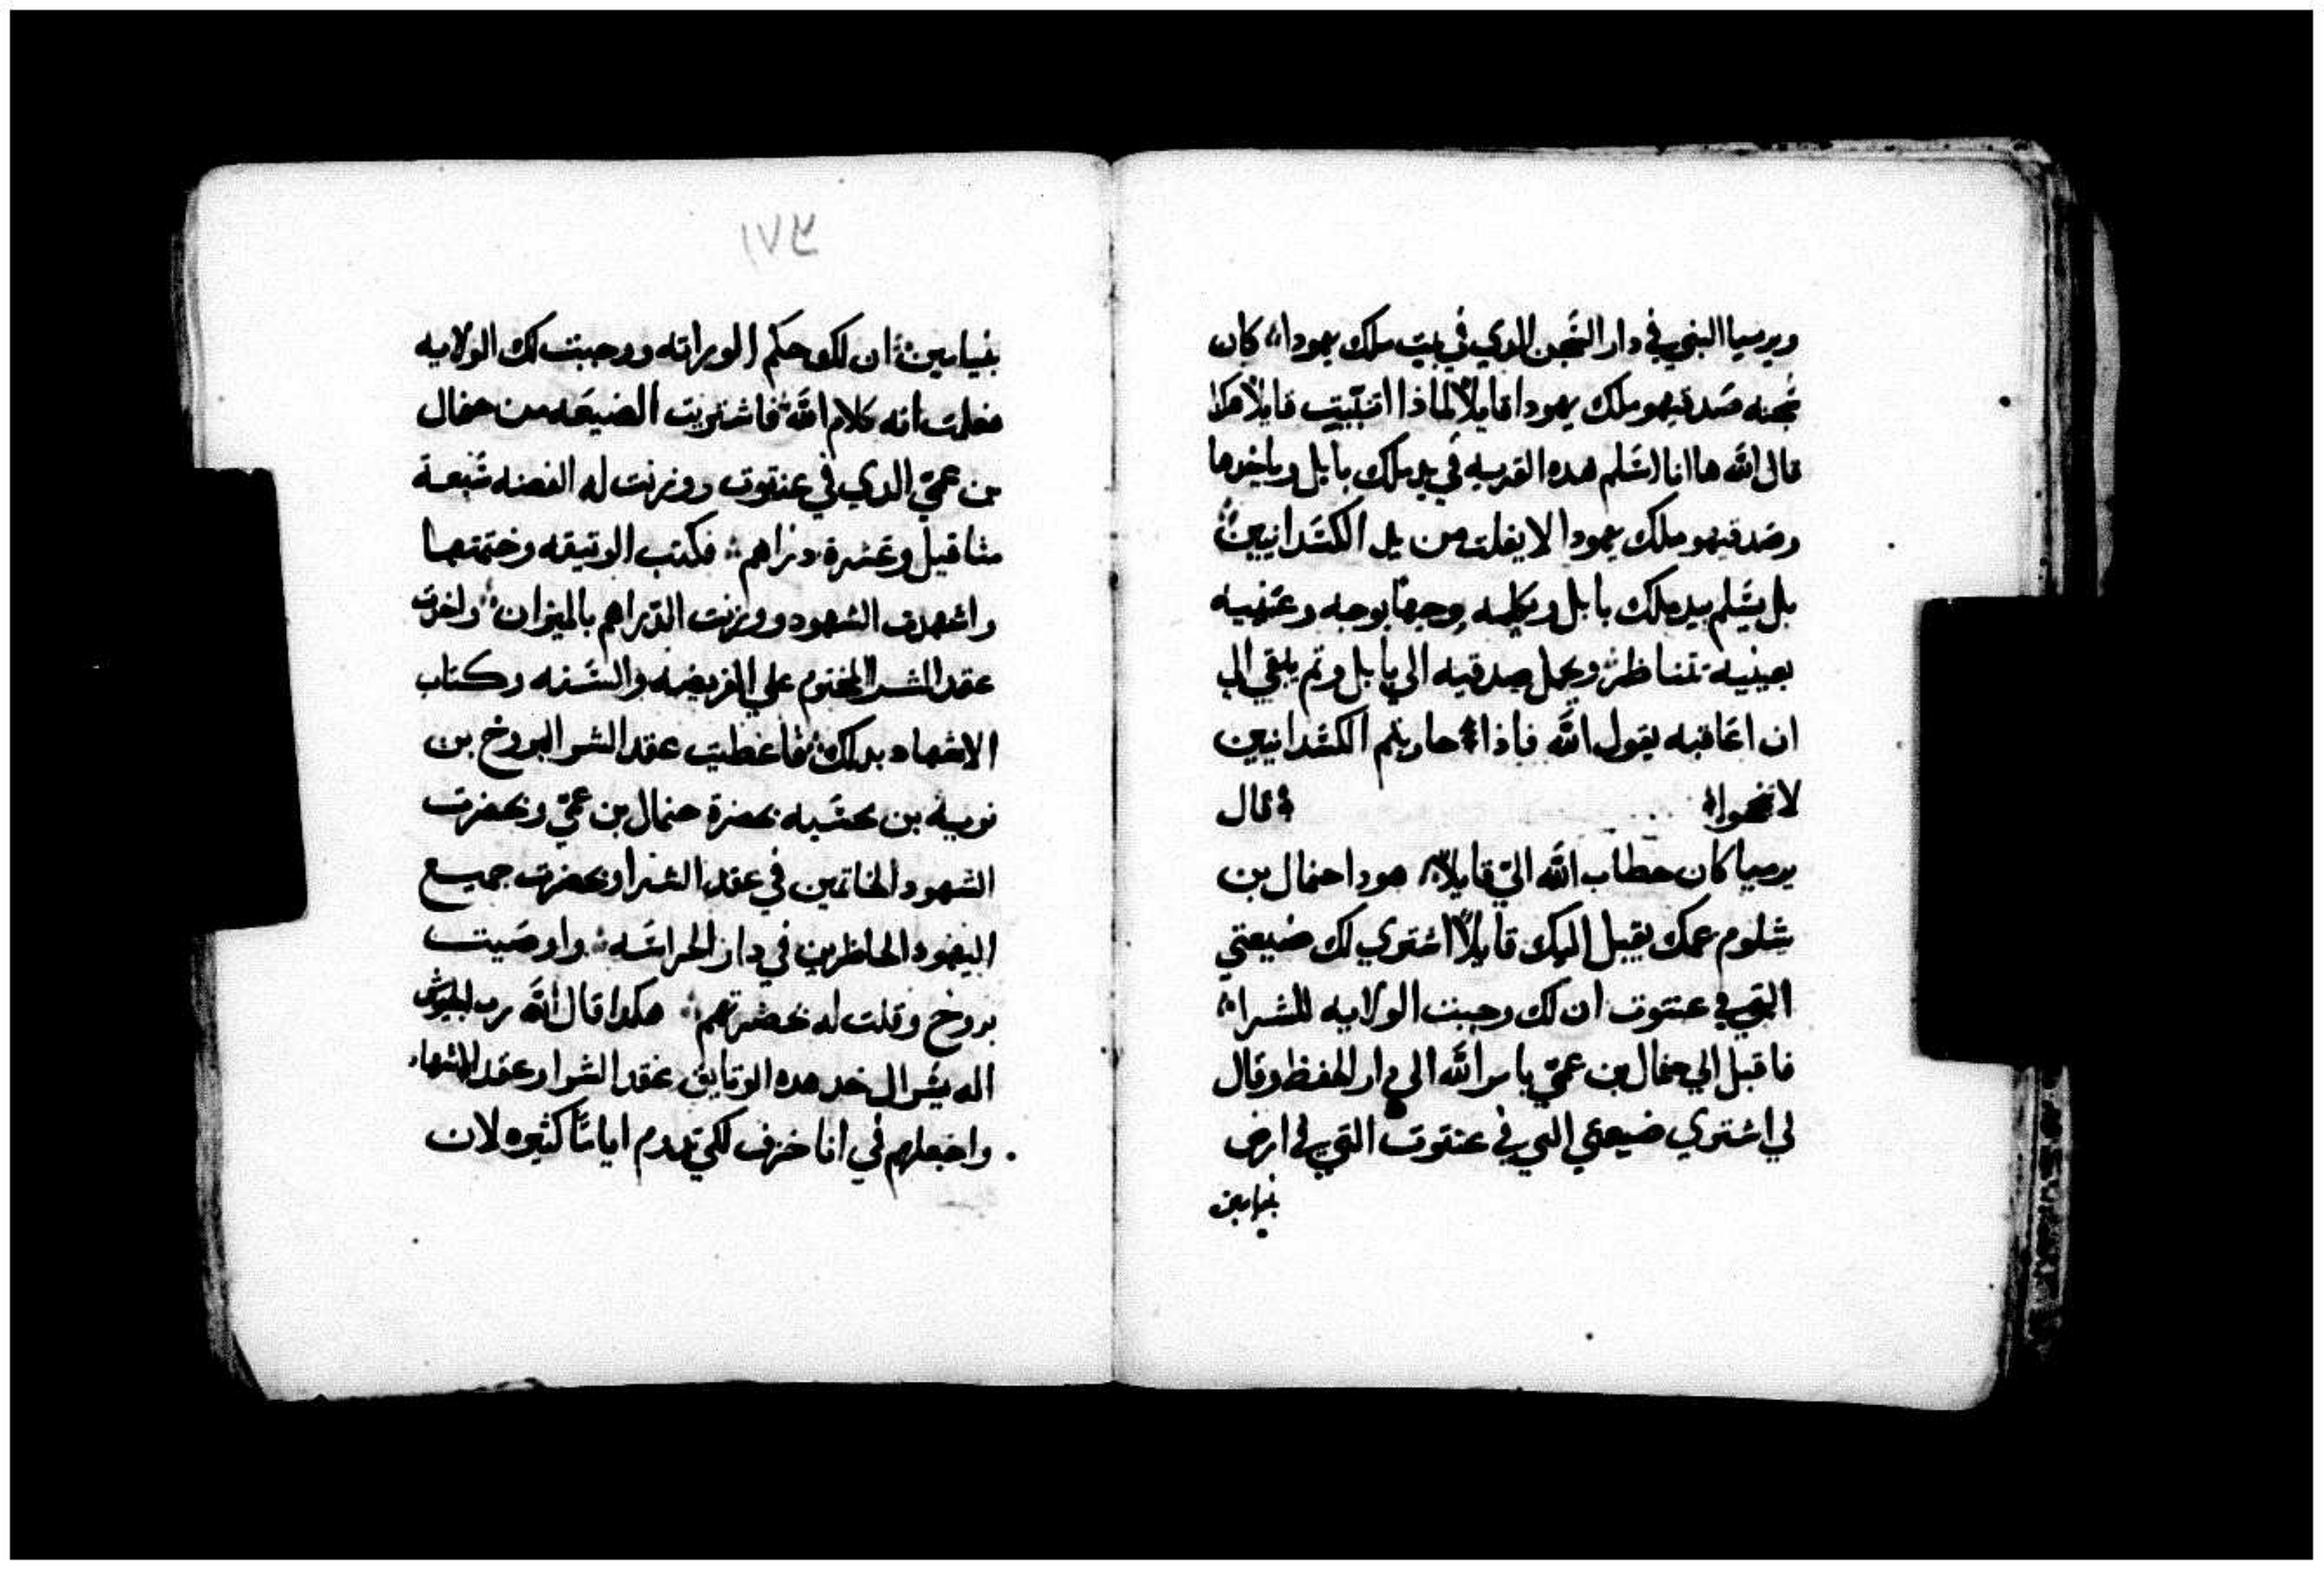 ويرميا النبي في دار السجن الدي في بيت ملك يهودا كان
سجنه صدقيهو ملك يهودا قايلا لماذا اتنبيت قايلا هكدا
قال الله ها انا اسلم هده القريه في يد ملك بابل وياخدها
وصدقيهو ملك يهودا لا يفلت من يد الكسدانيين
بل يسلم بيد ملك بابل ويكلمه وجها بوجه وعينيه
بعينيه تتناظر ويحمل صدقيه الى بابل وتم يلقي الي
ان اعاقبه يقول الله فاذا حاربتم الكسدانيين
لا تنجحوا قال
يرميا كان خطاب الله الي قايلا هودا حنمال بن
شلوم عمك يقبل اليك قايلا اشتري لك ضيعتي
التي في عنتوت ان لك وجبت الولايه للشرا
فاقبل الي حنمال بن عمي بامر الله الى دار الحفظ وقال
لي اشتري ضيعتي التي في عنتوت التي في ارض
بنيامين
١٧٤
بنيامين ان لك حكم الوراته ووجبت لك الولايه
فعلمت انه كلام الله فاشتريت الضيعه من حنمال
بن عمي الدي في عنتوت ووزنت له الفضه سبعة
مثاقيل وعشرة دراهم فكتب الوتيقه وختمتها
واشهدت الشهود ووزنت الدراهم بالميزان واخدت
عقد الشرا المختوم علي الفريضه والسنه وكتاب
الاشهاد بدلك فاعطيت عقد الشرا لبروخ بن
نوريه بن محسيه بحضرة حنمال بن عمي وبحضرت
الشهود الخاتمين في عقد الشرا وبحضرت جميع
اليهود الحاظرين في دار الحراسه واوصيت
بروخ وقلت له بحضرتهم هكدا قال الله رب الجيوش
اله يسرال خد هده الوتايق عقد الشرا وعقد الاشهاد
واجعلهم في انا خزف لكي تدوم اياما كثيره لان